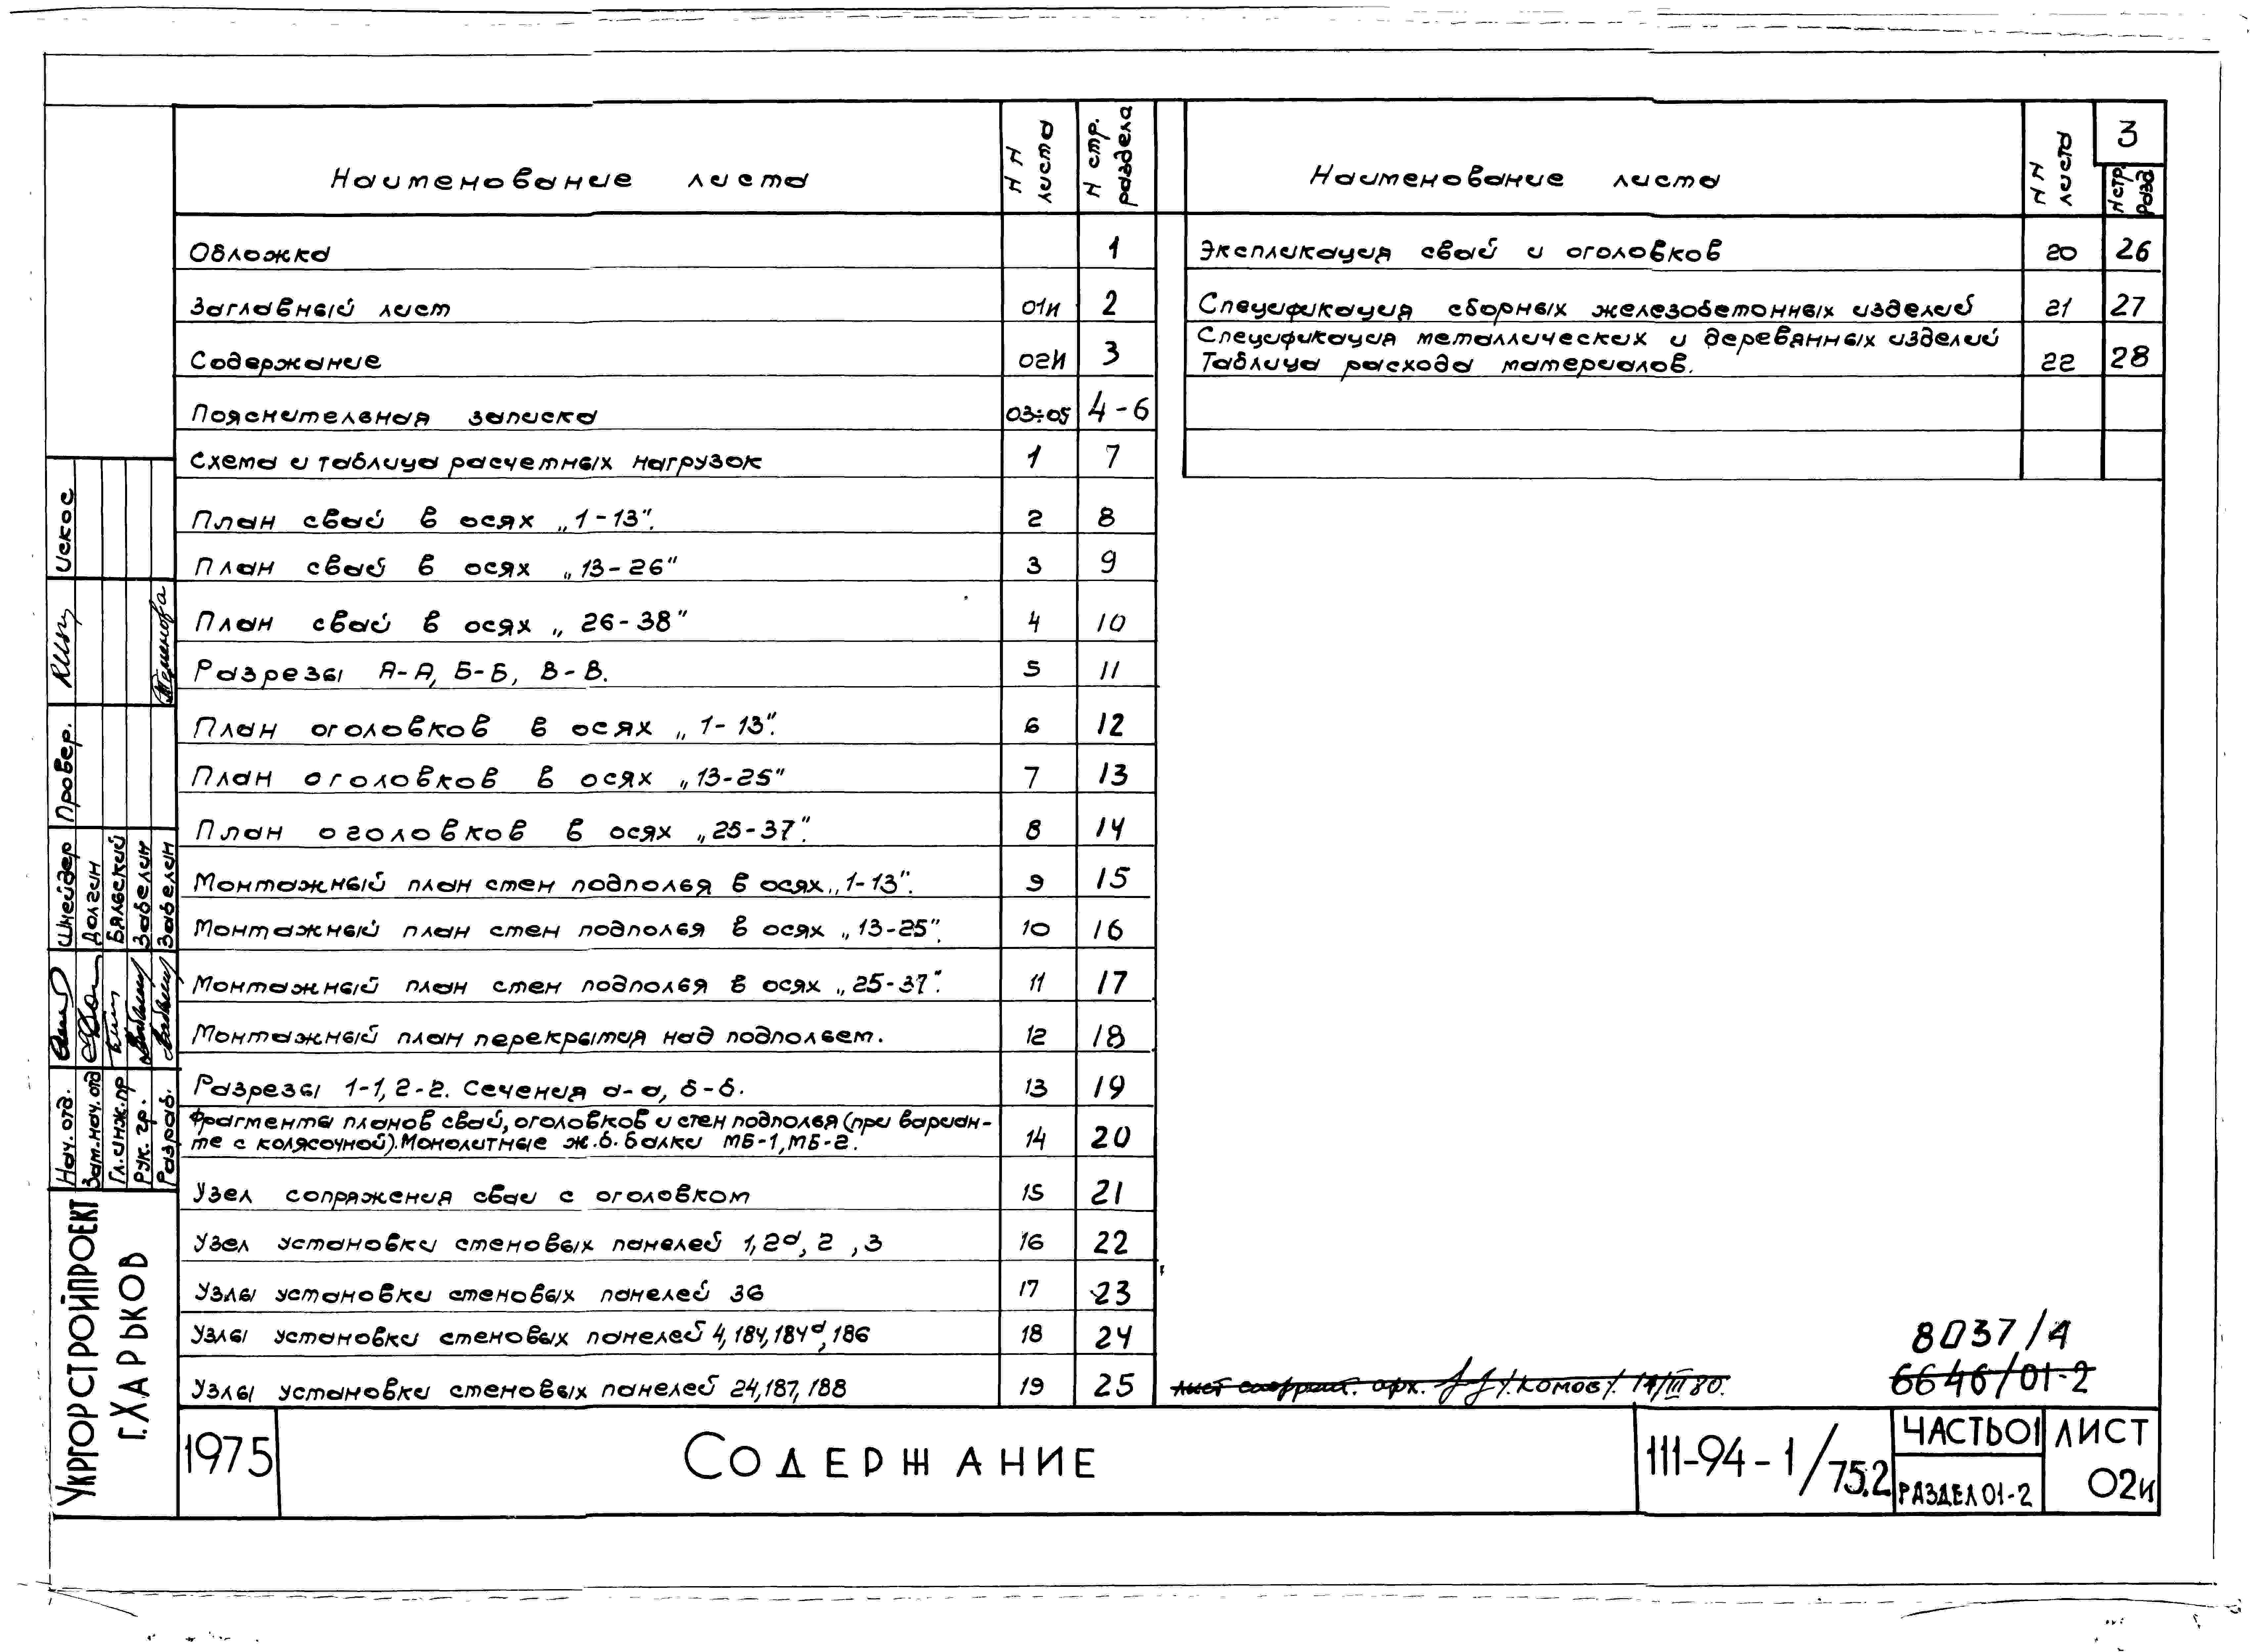 3
Наименование листа
NN листа
N стр. раздела
Обложка 1
Заглавный лист 01и 2
Содержание 02и 3
Пояснительная записка 03÷05 4-6
Схема и таблица расчетных нагрузок 1 7
План свай в осях „1-13". 2 8
План свай в осях „13-26" 3 9
План свай в осях „26-38" 4 10
Разрезы А-А, Б-Б, В-В. 5 11
План оголовков в осях „1-13". 6 12
План оголовков в осях „13-25" 7 13
План оголовков в осях „25-37". 8 14
Монтажный план стен подполья в осях „1-13". 9 15
Монтажный план стен подполья в осях „13-25". 10 16
Монтажный план стен подполья в осях „25-37". 11 17
Монтажный план перекрытия над подпольем. 12 18
Разрезы 1-1, 2-2. Сечения а-а, б-б. 13 19
Фрагменты планов свай, оголовков и стен подполья (при вариан-
те с колясочной). Монолитные ж.б. балки МБ-1, МБ-2. 14 20
Узел сопряжения сваи с оголовком 15 21
Узел установки стеновых панелей 1, 2а, 2, 3 16 22
Узлы установки стеновых панелей 36 17 23
Узлы установки стеновых панелей 4, 184, 184а, 186 18 24
Узлы установки стеновых панелей 24, 187, 188 19 25
Наименование листа
NN листа
N стр. разд
Экспликация свай и оголовков 20 26
Спецификация сборных железобетонных изделий 21 27
Спецификация металлических и деревянных изделий
Таблица расхода материалов. 22 28
8037/4
6646/01-2
лист скоррект. арх. /. Комов /. 14/III 80.
Искос
Провер.
Шнейдер
Долгин
Бяльский
Забелин
Забелин
Нач. отд.
Зам. нач. отд
Гл. инж. пр
Рук. гр.
Разраб.
Укргорстройпроект
г. Харьков
1975
Содержание
111-94-1/75.2
Часть 01
Раздел 01-2
Лист
02и